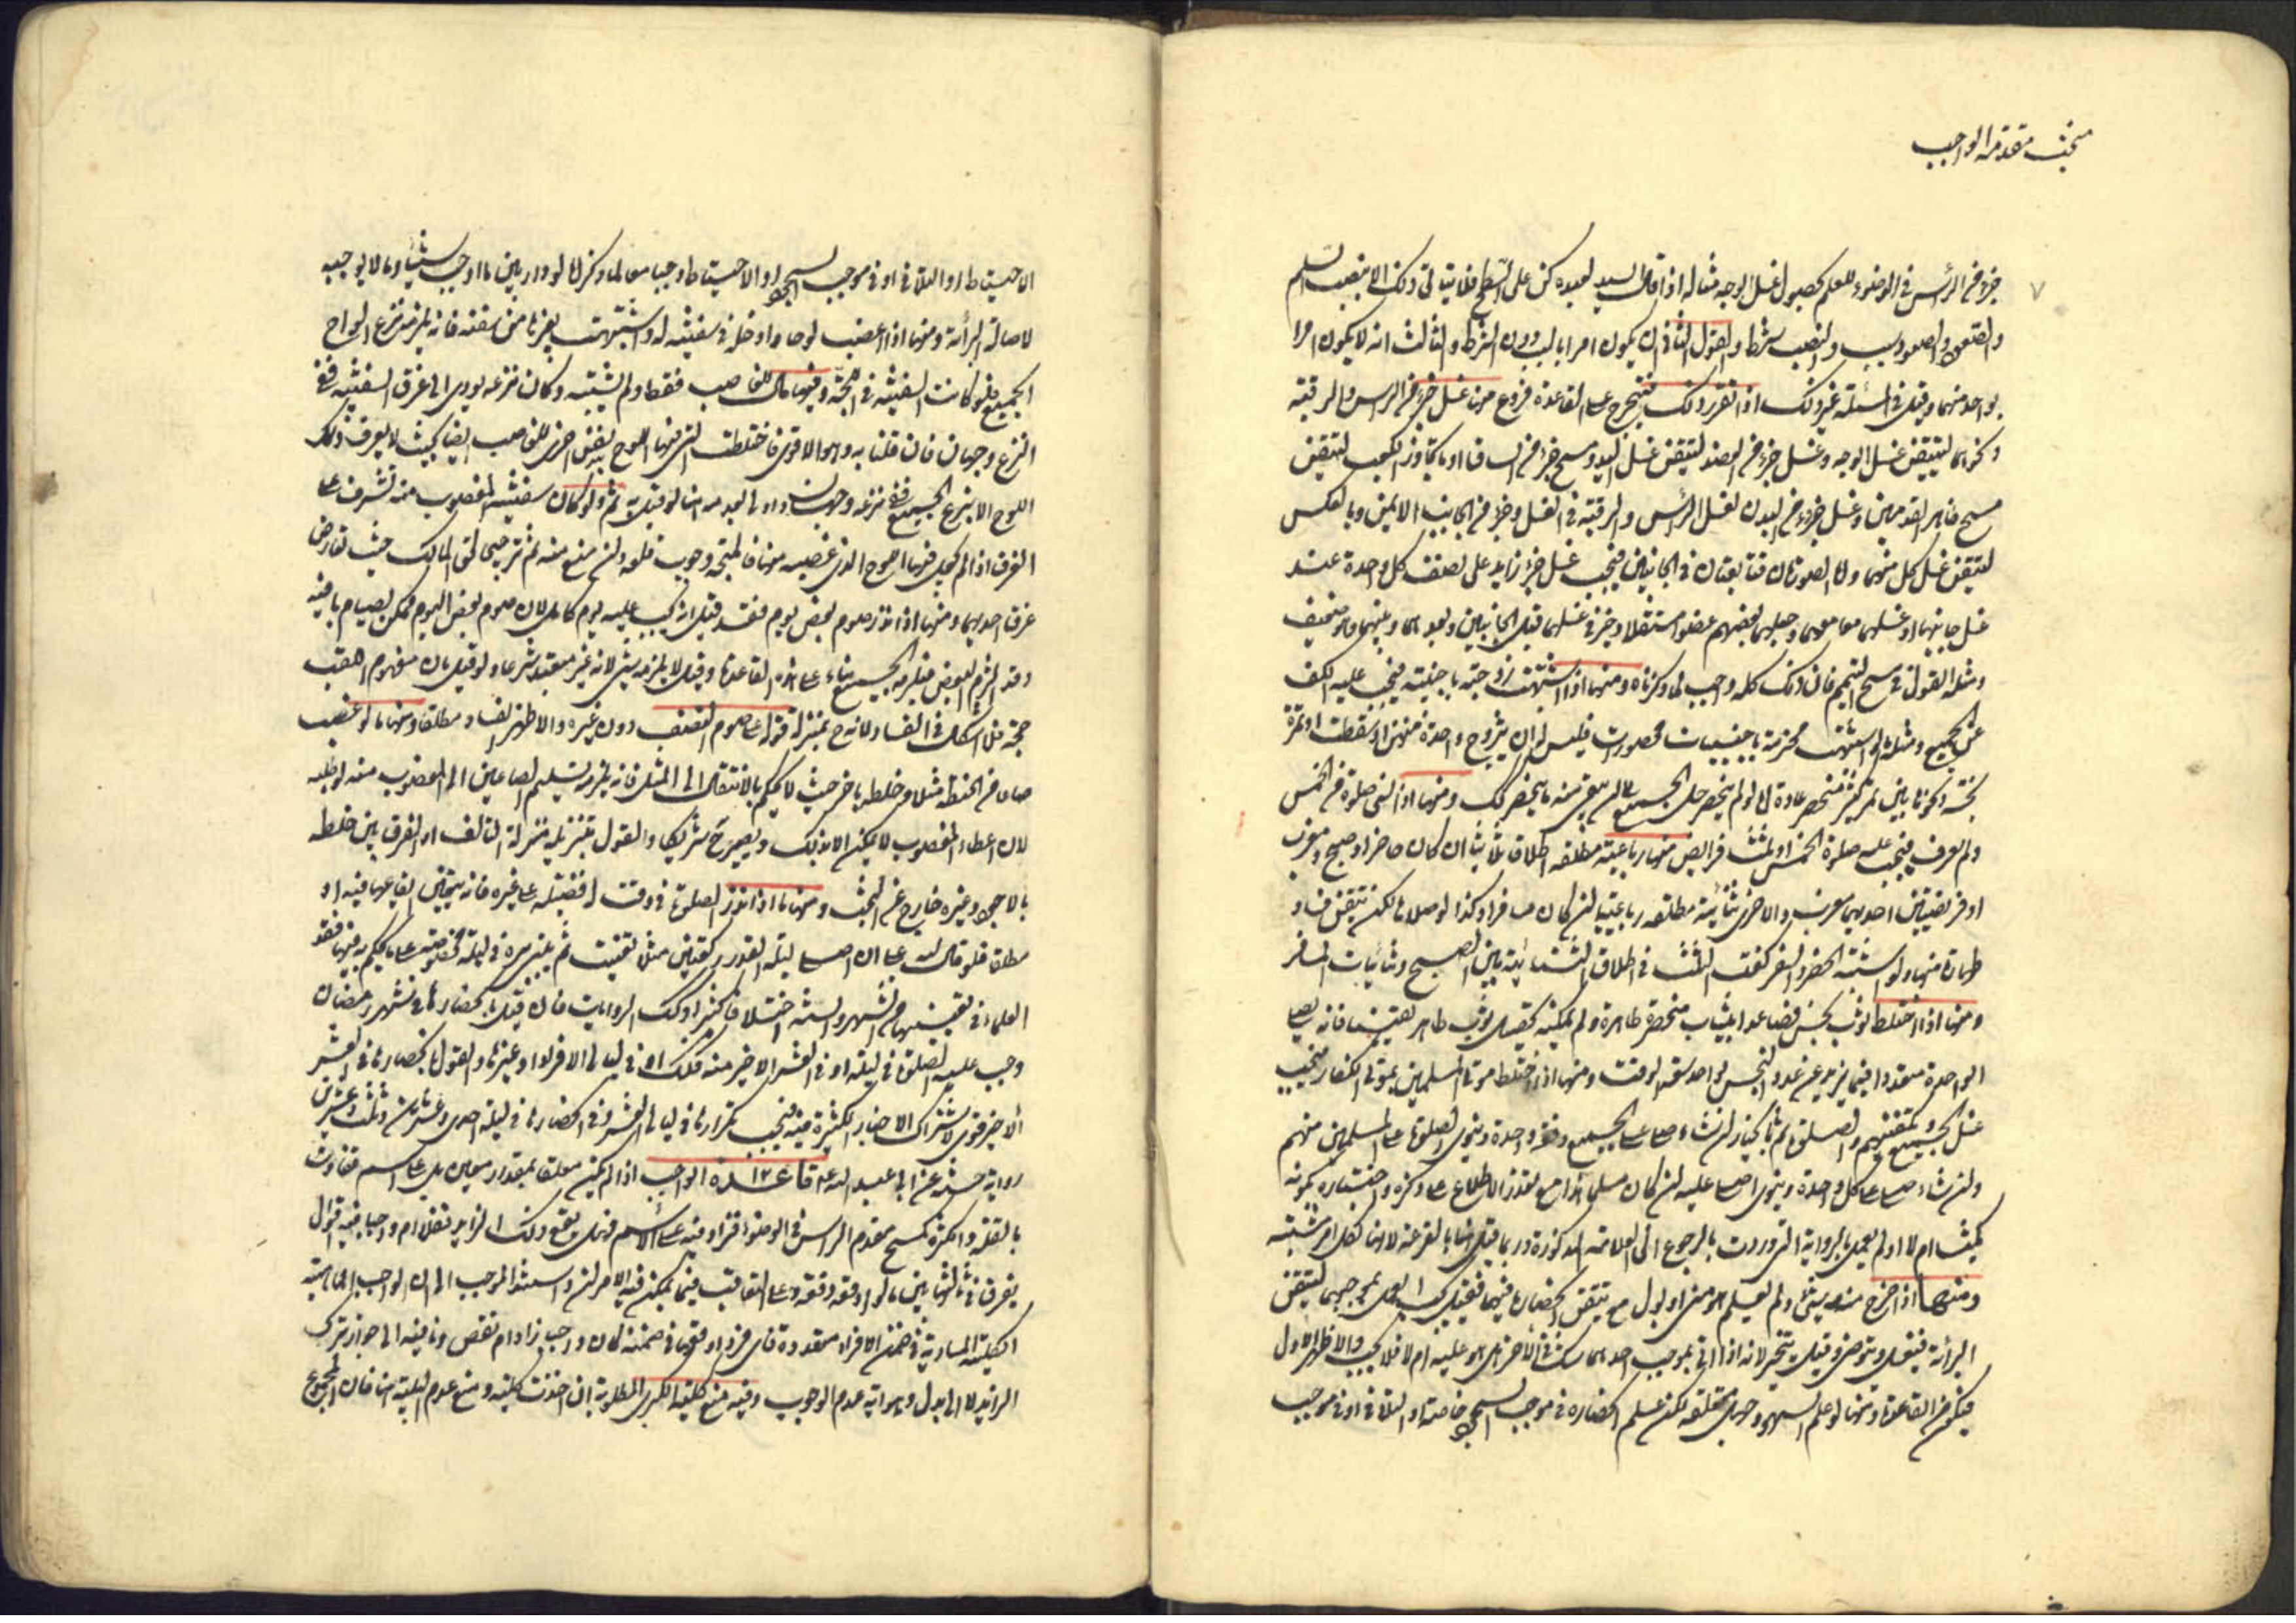 مبحث مقدمة الواجب
٧
جزء من الرأس في الوضوء للعلم بحصول غسل الوجه مثاله اذا قال السيد لعبده كن على السطح فلا يتأتى ذلك الا بنصب السلم
والصعود فالصعود سبب والنصب شرط والقول الثاني ان يكون امرا بالسبب دون الشرط والثالث انه لا يكون امرا
بواحد منهما وقيل في المسئلة غير ذلك اذا تقرر ذلك فيتخرج على القاعدة فروع منها غسل جزء من الراس والرقبة
ونحوهما ليتيقن غسل الوجه وغسل جزء من العضد ليتيقن غسل اليد ومسح جزء من الساق او ما يجاوز الكعب ليتيقن
مسح ظاهر القدمين وغسل جزء من البدن لغسل الرأس والرقبة في الغسل وجزء من الجانب الايمن وبالعكس
ليتيقن غسل كل منهما واما العورتان فتابعتان في الجانبين فيجب غسل جزء زايد على نصف كل واحدة عند
غسل جانبها او غسلهما معا معهما وجعلهما بعضهم عضوا مستقلا وخير في غسلهما قبل الجانبين وبعدهما وبينهما وهو ضعيف
ومثله القول في مسح التيمم فان ذلك كله واجب لما ذكرناه ومنها اذا اشتبهت زوجته باجنبية فيجب عليه الكف
عن الجميع ومثله ما لو اشتبهت محرمة باجنبيات محصورات فليس له ان يتزوج واحدة منهن او سقطت تمرة
نجسة ونحوها بين تمر كثير منحصر عادة اما لو لم ينحصر حل الجميع الى ان يبقى منه ما ينحصر لك ومنها اذا نسي صلوة من الخمس
ولم يعرف فيجب عليه صلوة الخمس او ثلث فرايض منها رباعية مطلقة اطلاقا ثلاثيا ان كان حاضرا وصبح ومغرب
او فريضتين احديهما مغرب والاخرى ثنائية مطلقة رباعيا ان كان مسافرا وكذا لو صلاها لكن تيقن فساد
طهارة منها ولو اشتبه الحضر والسفر كفت الثلث في اطلاق الثنائية بين الصبح وثنائيات المسافر
ومنها اذا اختلط ثوب نجس فصاعدا بثياب منحصرة طاهرة ولم يمكنه تحصيل ثوب طاهر يقينا فانه يصلي
الواحدة متعددا فيما يزيد عن عدد النجس بواحد سعة الوقت ومنها اذا اختلط موتى المسلمين بموتى الكفار فيجب
غسل الجميع وتكفينهم والصلوة ثم يتخير ان شاء صلى على الجميع دفعة واحدة وينوي الصلوة على المسلمين منهم
وان شاء صلى على كل واحدة وينوي اصلي عليه ان كان مسلما هذا مع تعذر الاطلاع على ذكره واختباره بكونه
كميشا ام لا او لم يعمل بالرواية التي وردت بالرجوع الى العلامة المذكورة وربما قيل هنا بالقرعة لانها لكل امر مشتبه
ومنها اذا خرج منه شيء ولم يعلم هو مني او بول مع تيقن انحصاره فيهما فقيل يجب العمل بموجبهما ليتيقن
البرائة فيغسل ويتوضئ وقيل يتخير لانه اذا اتى بموجب احدهما شك في الآخر هل هو عليه ام لا فلا يجب والاظهر الاول
فيكون من القاعدة ومنها لو علم السهو وجهل متعلقه لكن علم انحصاره في موجب السجود خاصة او التلافي او في موجب
الاحتياط او التلافي او في موجب السجود او الاحتياط وجبا معا لما ذكر اما لو دار بين ما اوجب شيئا وما لا يوجبه
لاصالة البرائة ومنها اذا غصب لوحا وادخله في سفينته له واشتبهت بغيرها من سفنه فانه يلزمه نزع الواح
الجميع فلو كانت السفينة في اللجة وفيها مال للغاصب فقط ولم تشتبه وكان نزعه يؤدي الى غرق السفينة ففي
النزع وجهان فان قلنا به وهو الاقوى فاختلطت التي فيها اللوح بسفن اخرى للغاصب ايضا بحيث لا يعرف ذلك
اللوح الا بنزع الجميع ففي نزعه وجهان واولى بالعدم هنا لو قيل به ثم ولو كان سفينة المغصوب منه تشرف على
الغرق اذا لم يجعل فيها اللوح الذي غصبه منها فالمتجه وجوب قلعه وان منع منه ثم ترجيحا لحق المالك حيث تعارض
غرق احديهما ومنها اذا نذر صوم بعض يوم فقد قيل انه يجب عليه يوم كامل لان صوم بعض اليوم ممكن بصيام باقيه
وقد التزم البعض فيلزمه الجميع بناء على هذه القاعدة وقيل لا يلزمه شئ لانه غير متعبد شرعا ولو قيل بان مفهوم اللقب
حجة فلا اشكال في الفساد لانه ح بمنزلة قوله على صوم النصف دون غيره والاظهر الفساد مطلقا ومنها ما لو غصب
صاعا من الحنطة مثلا وخلطه باخر حيث لا يحكم بالانتقال الى المثل فانه يلزمه تسليم الصاعين الى المغصوب منه لو طلبه
لان اعطاء المغصوب لا يمكن الا بذلك ويصير ح شريكا والقول بتنزيله منزلة التالف او الفرق بين خلطه
بالاجود وغيره خارج عن البحث ومنها ما اذا نذر الصلوة في وقت لافضيلة على غيره فانه يتعين ايقاعها فيه او
مطلقا فلو قال لله على ان اصلي ليلة القدر ركعتين مثلا تعينت ثم غير مرة في ليلة مخصوصة على ما يحكم به فيها فقد
العلماء في تعيينها من الشهر والسنة اختلافا كثيرا وكذلك الروايات فان قيل بانحصارها في شهر رمضان
وجب عليه الصلوة في ليلة او في العشر الاخير منه فكذلك او في ليالي الافراد او غيرها والقول بانحصارها في العشر
الاخير قوي لاشتراك الاخبار الكثيرة فيه فيجب تكرارها في ليالي العشر وفي انحصارها في ليلة احدى وعشرين وثلث وعشرين
رواية حسنة عن ابي عبد الله ع قاعدة ١٢ الواجب اذا لم يكن معلقا بمقدار معين بل على اسم متفاوت
بالقلة والكثرة كمسح مقدم الراس في الوضوء اذا زاد فيه على الاسم فهل يقع ذلك الزايد نفلا ام واجبا فيه اقوال
يفرق في ثالثها بين ما لو اوقعه دفعة وعلى التعاقب فيما يمكن فيه الامران واستند الموجب الى ان الواجب الماهية
الكلية المساوية في ضمن الافراد متعددة فاي فرد اوقعها في ضمنه كان واجبا زاد ام نقص ونافيه الى جواز ترك
الزايد لا الى بدل وهو اية عدم الوجوب وفيه منع كلية الكبرى المطلوبة ان اخذت كلية ومنع عدم البدلية هنا فان المجموع